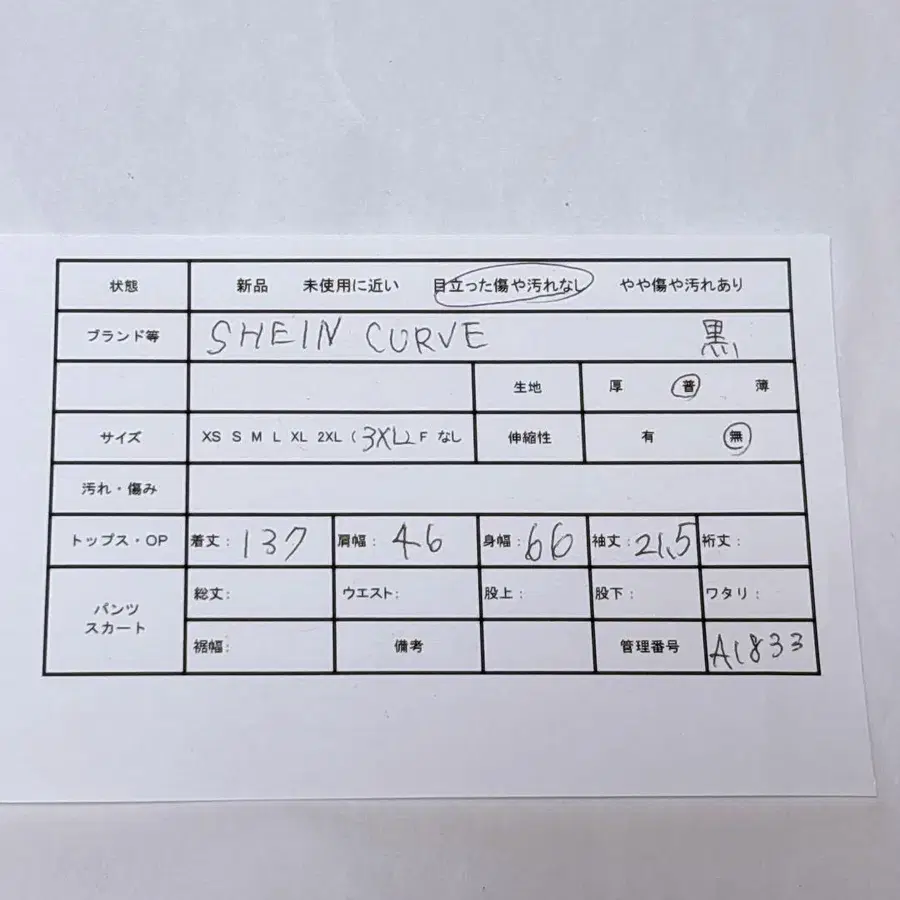 状態 新品 未使用に近い 目立った傷や汚れなし やや傷や汚れあり
ブランド等 SHEIN CURVE 黒
生地 厚 普 薄
サイズ XS S M L XL 2XL (3XL) F なし 伸縮性 有 無
汚れ・傷み
トップス・OP 着丈: 137 肩幅: 46 身幅: 66 袖丈: 21.5 裄丈:
パンツ スカート 総丈: ウエスト: 股上: 股下: ワタリ:
裾幅: 備考 管理番号 A1833